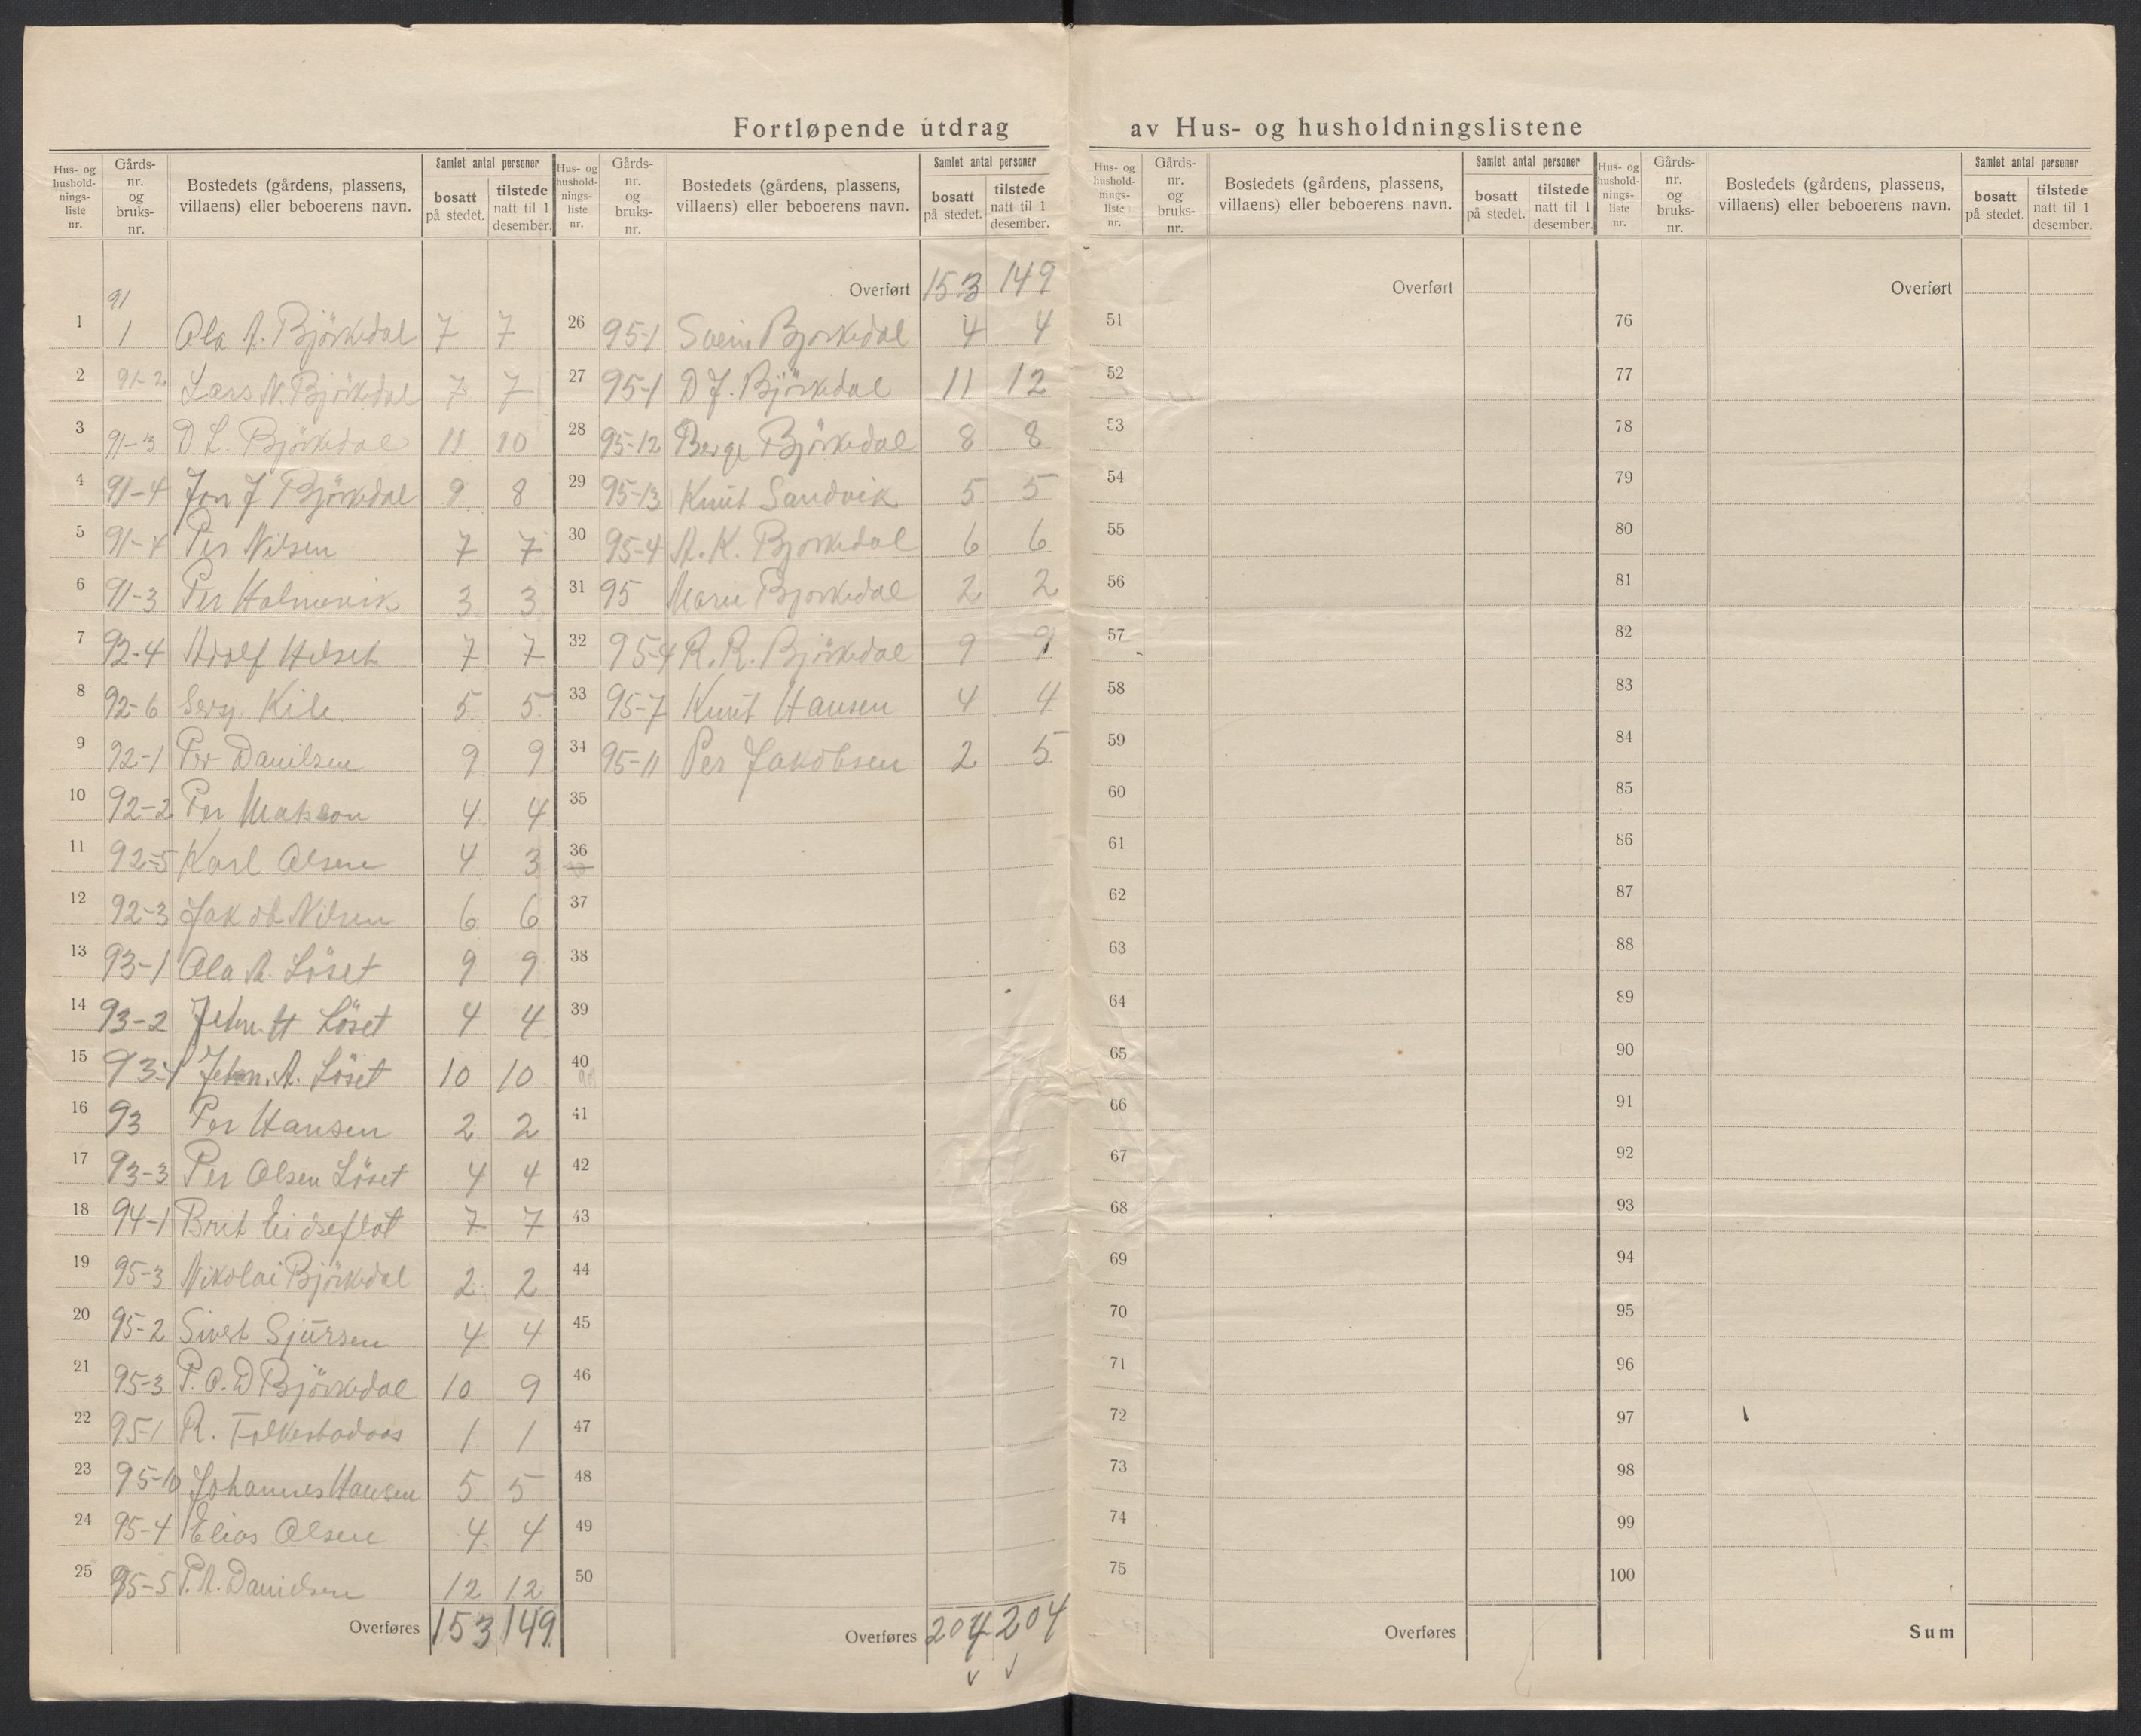 Fortløpende utdrag av Hus- og husholdningslistene
Hus- og hushold-nings-liste nr. | Gårds-nr. og bruks-nr. | Bostedets (gårdens, plassens, villaens) eller beboerens navn. | Samlet antal personer | bosatt på stedet. | tilstede natt til 1 desember.
1 91 1 Ola A. Björkedal 7 7
2 91-2 Lars N. Björkedal 7 7
3 91-3 D L. Björkedal 11 10
4 91-4 Jon J Björkedal 9 8
5 91-4 Per Nilsen 7 7
6 91-3 Per Holmevik 3 3
7 92-4 Adolf Hilset 7 7
8 92-6 Serg. Kile 5 5
9 92-1 Per Danilsen 9 9
10 92-2 Per Matsson 4 4
11 92-5 Karl Olsen 4 3
12 92-3 Jakob Nilsen 6 6
13 93-1 Ola A. Löset 9 9
14 93-2 John H Löset 4 4
15 93-4 John. A. Löset 10 10
16 93 Per Hansen 2 2
17 93-3 Per Olsen Löset 4 4
18 94-1 Brit Eidseflot 7 7
19 95-3 Nikolai Björkedal 2 2
20 95-2 Sivert Sjursen 4 4
21 95-3 P. O. D Björkedal 10 9
22 95-1 R. Folkestadaas 1 1
23 95-10 Johannes Hansen 5 5
24 95-4 Elias Olsen 4 4
25 95-5 P. A. Danielsen 12 12
Overføres 153 149
Hus- og hushold-nings-liste nr. | Gårds-nr. og bruks-nr. | Bostedets (gårdens, plassens, villaens) eller beboerens navn. | Samlet antal personer | bosatt på stedet. | tilstede natt til 1 desember.
Overført 153 149
26 95-1 Svein Bjorkedal 4 4
27 95-1 D J. Björkedal 11 12
28 95-12 Berge Björkedal 8 8
29 95-13 Knut Sandvik 5 5
30 95-4 A. K. Bjorkedal 6 6
31 95 Marie Bjorkedal 2 2
32 95-4 R. R. Björkedal 9 9
33 95-7 Knut Hansen 4 4
34 95-11 Per Jakobsen 2 5
35
36
37
38
39
40
41
42
43
44
45
46
47
48
49
50
Overføres 204 204
Hus- og hushold-nings-liste nr. | Gårds-nr. og bruks-nr. | Bostedets (gårdens, plassens, villaens) eller beboerens navn. | Samlet antal personer | bosatt på stedet. | tilstede natt til 1 desember.
Overført
51
52
53
54
55
56
57
58
59
60
61
62
63
64
65
66
67
68
69
70
71
72
73
74
75
Overføres
Hus- og hushold-nings-liste nr. | Gårds-nr. og bruks-nr. | Bostedets (gårdens, plassens, villaens) eller beboerens navn. | Samlet antal personer | bosatt på stedet. | tilstede natt til 1 desember.
Overført
76
77
78
79
80
81
82
83
84
85
86
87
88
89
90
91
92
93
94
95
96
97
98
99
100
Sum